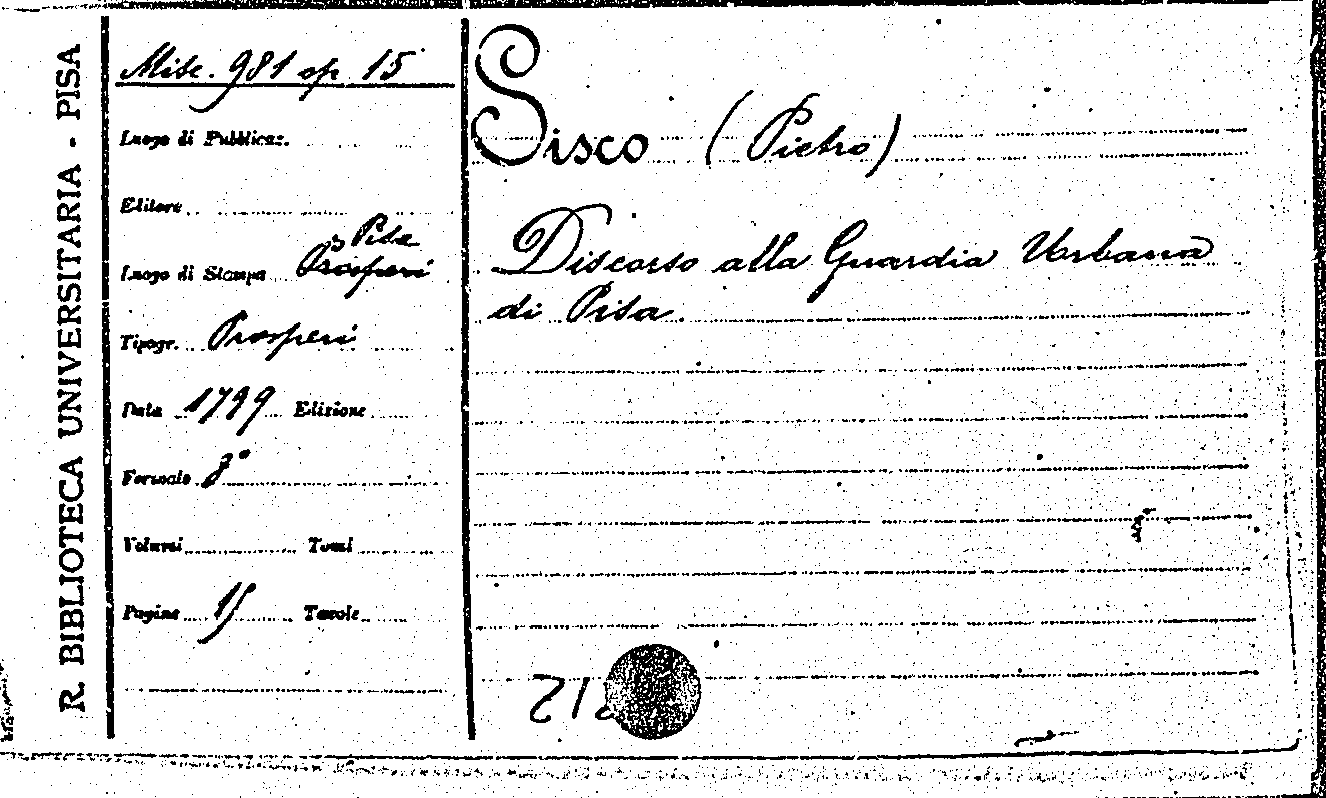 R. BIBLIOTECA UNIVERSITARIA - PISA
Misc. 981 op 15
Luogo di Pubblicaz.
Editore
Pisa
Luogo di Stampa Prosperi
Tipogr. Prosperi
Data 1799 Edizione
Formato 8°
Volumi Tomi
Pagine 15 Tavole
Sisco (Pietro)
Discorso alla Guardia Urbana
di Pisa